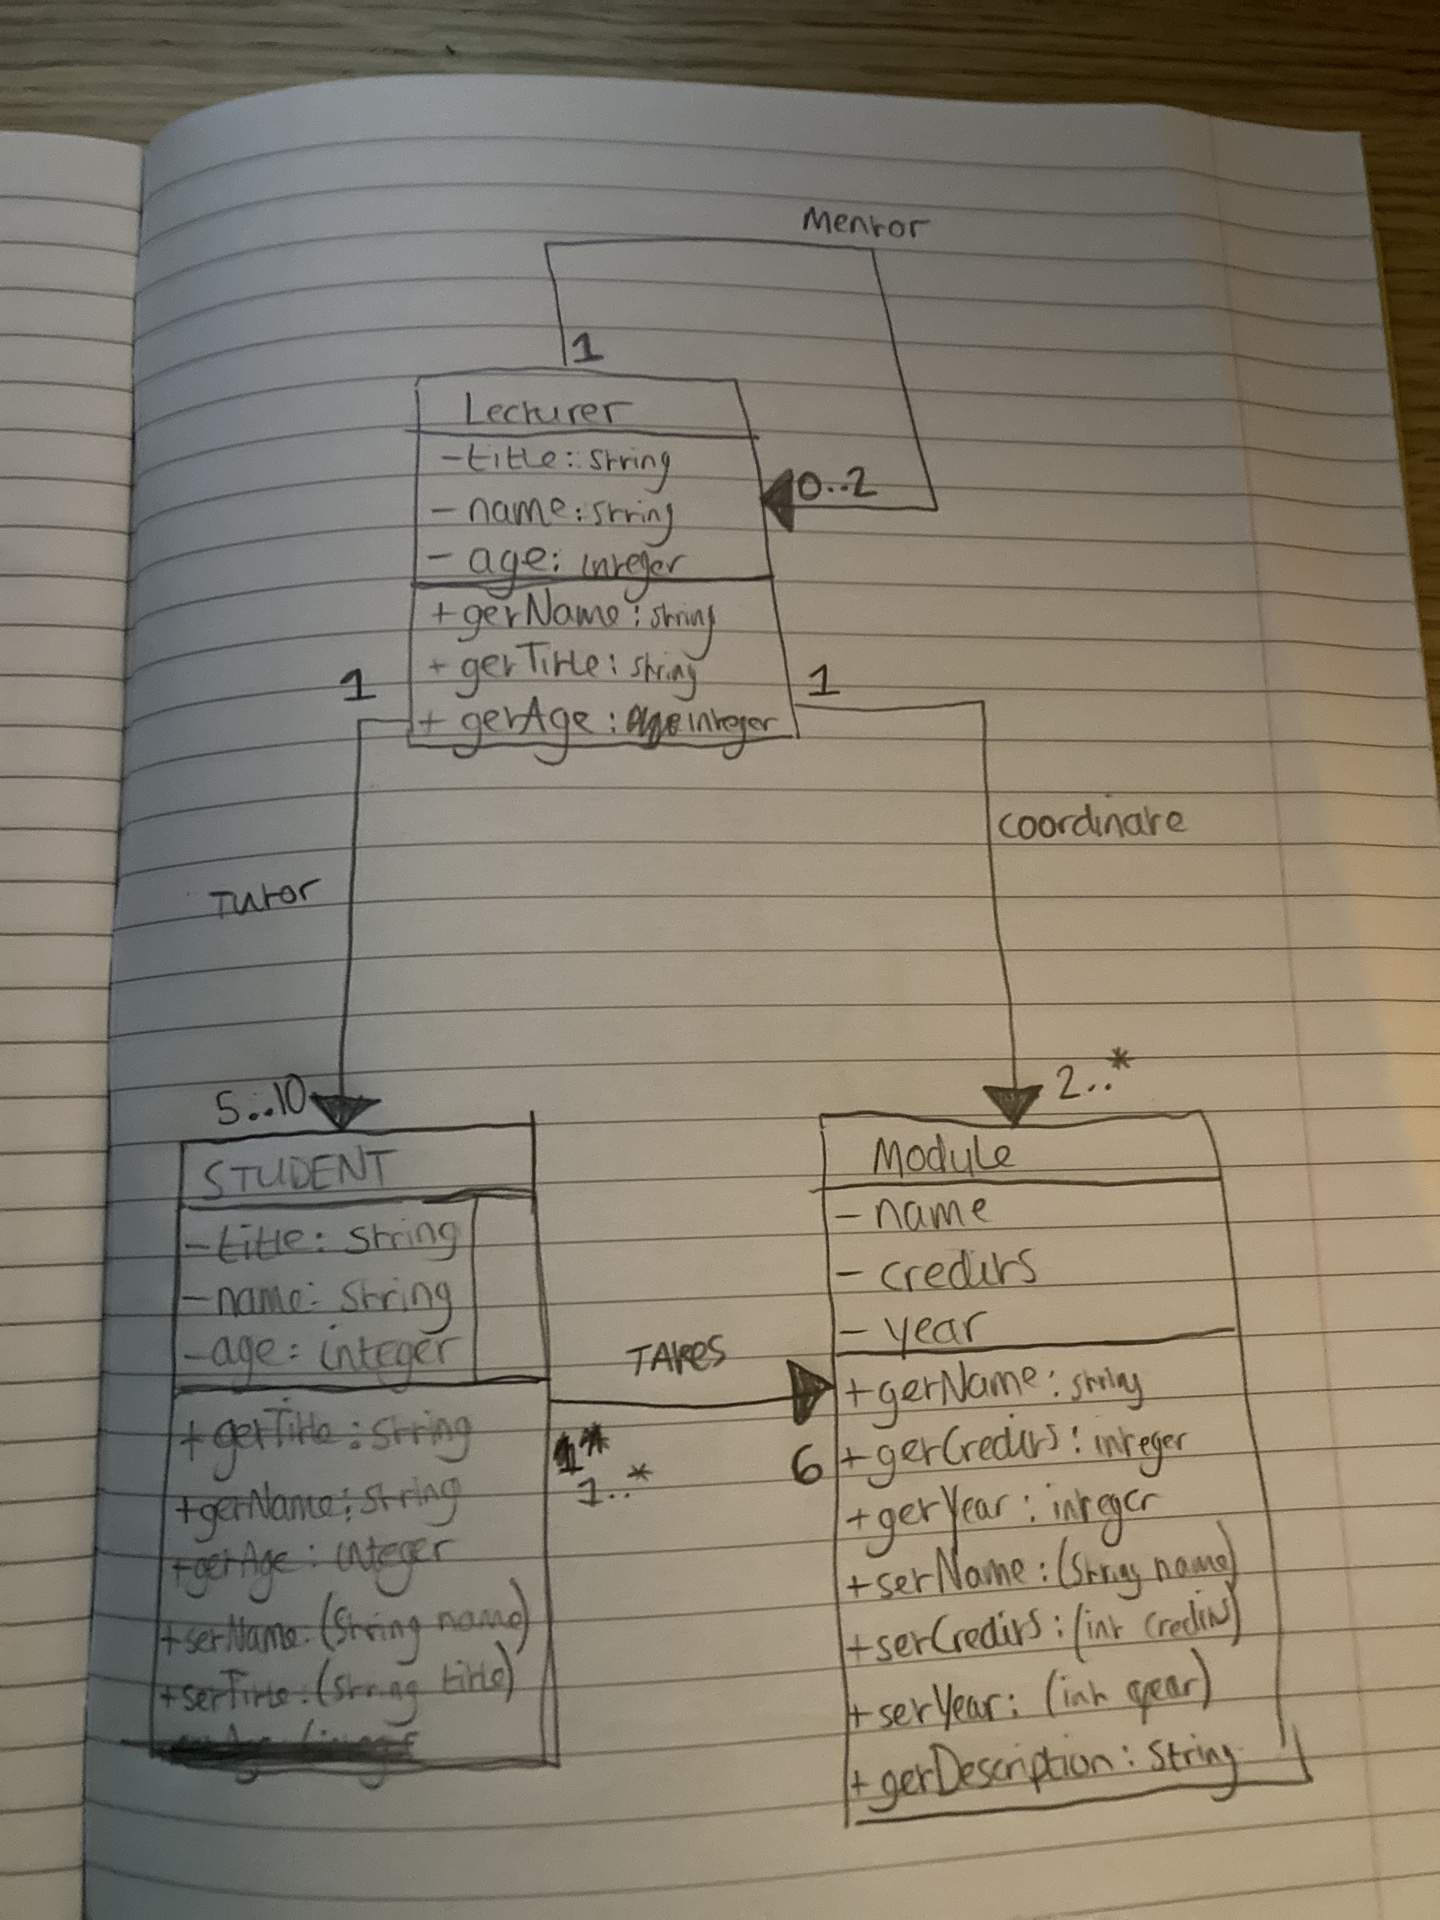 Mentor
1
Lecturer
-title: String
- name: String
0..2
- age: integer
+getName: String
+ getTitle: String
+ getAge: integer
1
1
coordinate
Tutor
5..10
2..*
STUDENT
-title: String
-name: String
-age: integer
+getTitle: String
+getName: String
+getAge: integer
+setName: (String name)
+setTitle: (String title)
TAKES
1..*
6
Module
- name
- credits
- year
+getName: String
+getCredits: integer
+getYear: integer
+setName: (String name)
+setCredits: (int credits)
+setYear: (int year)
+getDescription: String